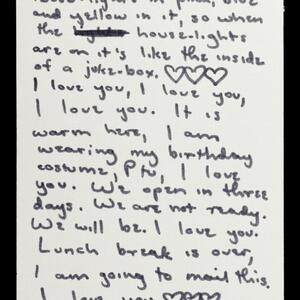 house-lights in pink, blue
and yellow in it, so when
the house-lights
are on it's like the inside
of a juke-box. ♡♡♡
I love you, I love you,
I love you. It is
warm here, I am
wearing my birthday
costume, P tu, I love
you. We open in three
days. We are not ready.
We will be. I love you.
Lunch break is over,
I am going to mail this.
I love you ♡♡♡